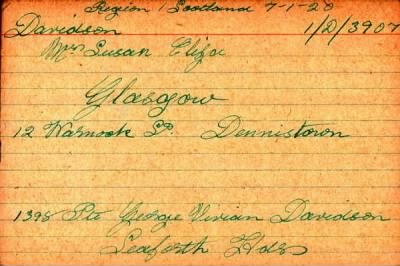 Region 1 Scotland 7-1-20
Davidson 1/D/3907
Mrs Susan Eliza
Glasgow
12 Warnock St. Dennistown
1398 Pte George Vivian Davidson
Seaforth Hdrs